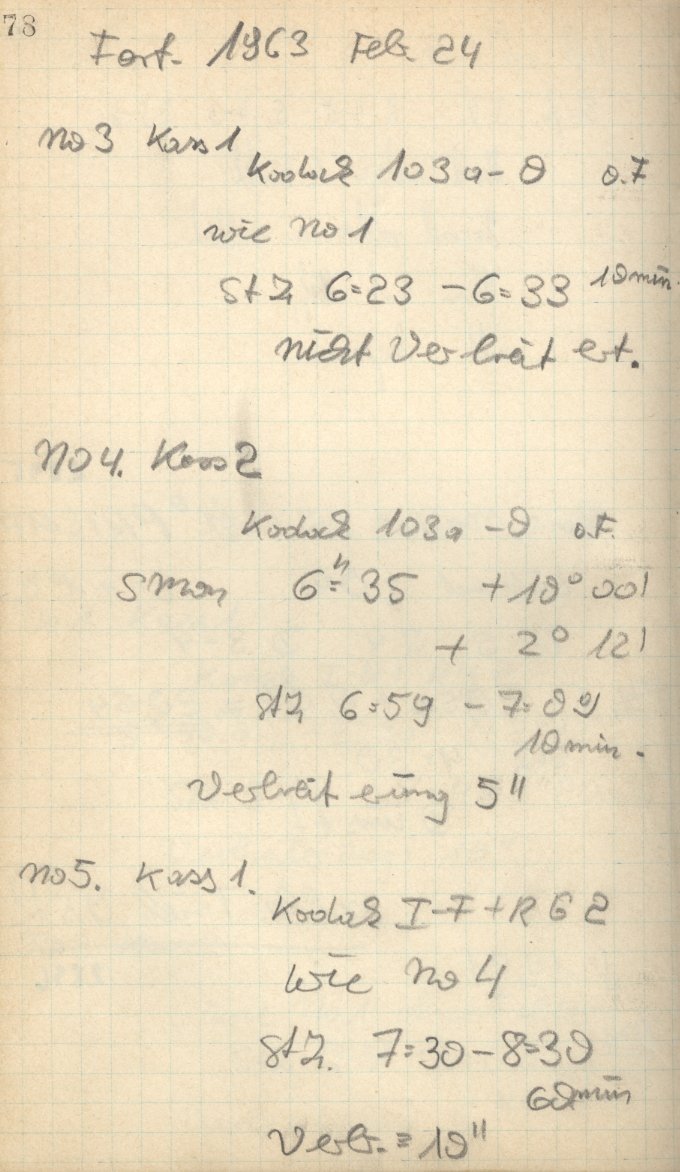 78
Fort. 1963 Feb. 24
No 3 Kass 1
Kodak 103a-O o.F
wie No 1
StZ 6=23 - 6=33 10min.
nicht Verbreitert.
No 4. Kass 2
Kodak 103a-O o.F.
S Mon 6=35 +10° 00'
+ 2° 12'
StZ 6=59 - 7=09
10min.
Verbreiterung 5"
No 5. Kass 1.
Kodak I-F + RG 2
wie No 4
StZ. 7=30 - 8=30
60min
Verb. = 10"